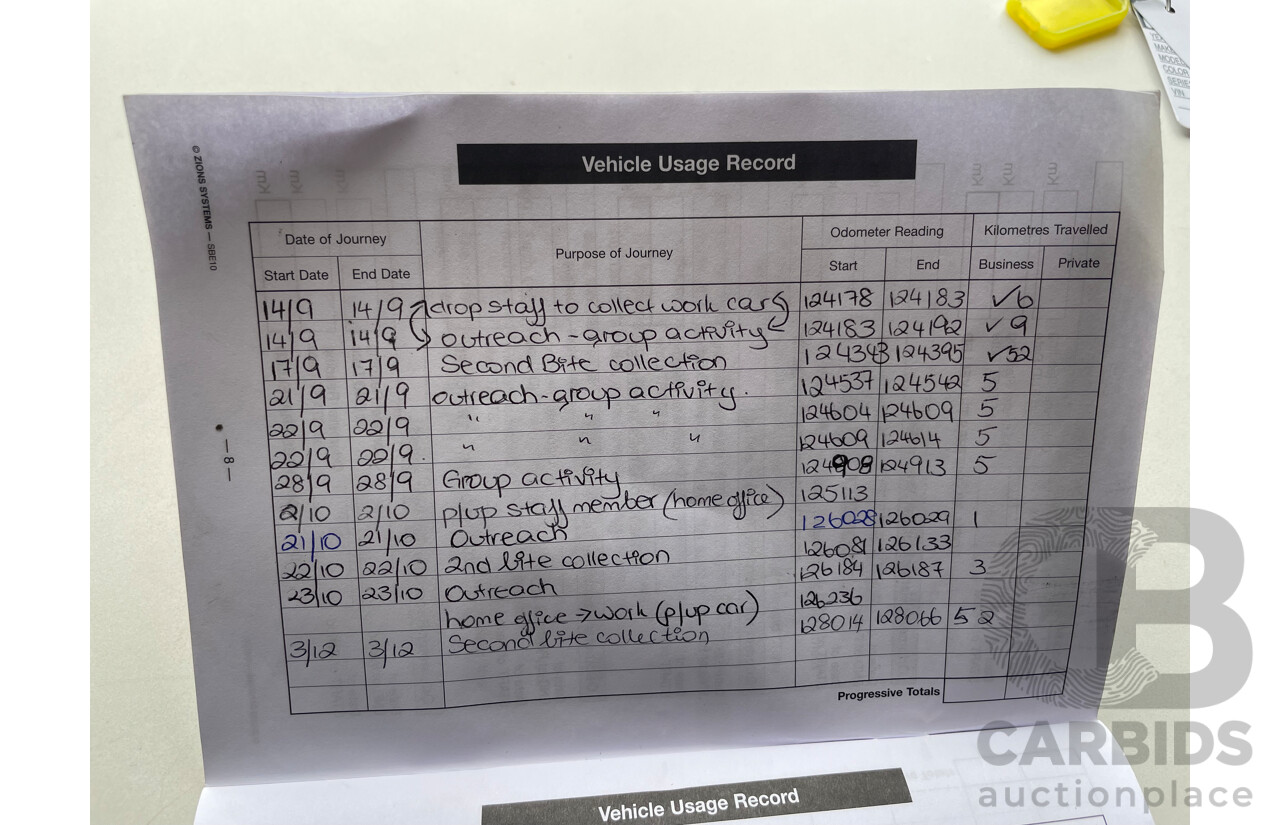 YE
MAK
MODEL
COLOR
SERIE
VIN
© ZIONS SYSTEMS — SBE10
— 8 —
Vehicle Usage Record
Date of Journey Purpose of Journey Odometer Reading Kilometres Travelled
Start Date End Date Start End Business Private
14/9 14/9 drop staff to collect work cars 124178 124183 ✓6
14/9 14/9 outreach-group activity 124183 124192 ✓9
17/9 17/9 Second Bite collection 124343 124395 ✓52
21/9 21/9 outreach-group activity. 124537 124542 5
22/9 22/9 " " " 124604 124609 5
22/9 22/9. " " " 124609 124614 5
28/9 28/9 Group activity 124908 124913 5
2/10 2/10 p/up staff member (home office) 125113
21/10 21/10 Outreach 126028 126029 1
22/10 22/10 2nd bite collection 126081 126133
23/10 23/10 Outreach 126184 126187 3
home office → work (p/up car) 126236
3/12 3/12 Second bite collection 128014 128066 52
Progressive Totals
Vehicle Usage Record
CB
CARBIDS
auctionplace